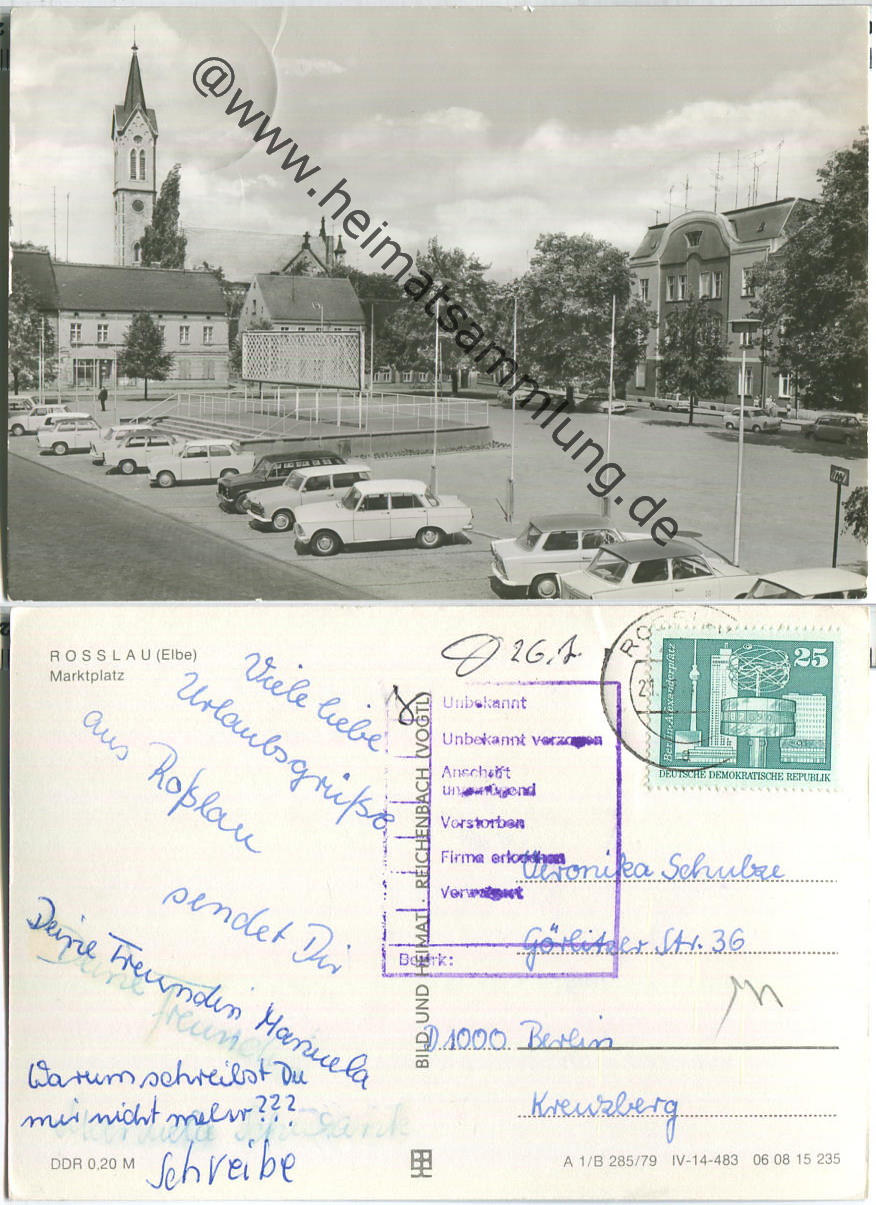 @www.heimatsammlung.de
ROSSLAU (Elbe)
Marktplatz
Viele liebe
Urlaubsgrüße
aus Roßlau
sendet Dir
Deine Freundin Manuela
Deine Freundin
Warum schreibst Du
mir nicht mehr???
Schreibe
DDR 0,20 M
BILD UND HEIMAT REICHENBACH (VOGTL)
26.7.
Unbekannt
Unbekannt verzogen
Anschrift
ungenügend
Verstorben
Firma erloschen
Verweigert
Bezirk:
21
a
Berlin-Alexanderplatz
25
DEUTSCHE DEMOKRATISCHE REPUBLIK
Veronika Schulze
Görlitzer Str. 36
D 1000 Berlin
Kreuzberg
A 1/B 285/79 IV-14-483 06 08 15 235